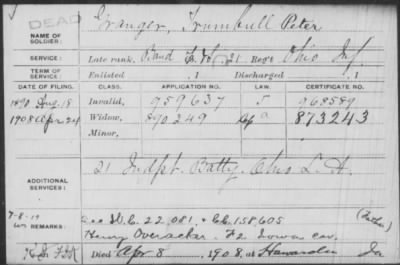 DEAD
NAME OF SOLDIER: Granger, Trumbull Peter
SERVICE: Late rank, Band F. & S. 21 Reg't Ohio Inf.
TERM OF SERVICE: Enlisted , 1 Discharged , 1
DATE OF FILING. CLASS. APPLICATION NO. LAW. CERTIFICATE NO.
1890 Aug. 18 Invalid, 959637 968589
1908 Apr 24 Widow, 890249 Ap 19 873243
Minor,
ADDITIONAL SERVICES: 21 Indpt. Batty. Ohio L. A.
REMARKS: See W.C. 22.081 + C.C. 158.605 (Father)
Henry Overacker. F2 Iowa Cav.
Died Apr 8, 1908, at Hawarden Ia